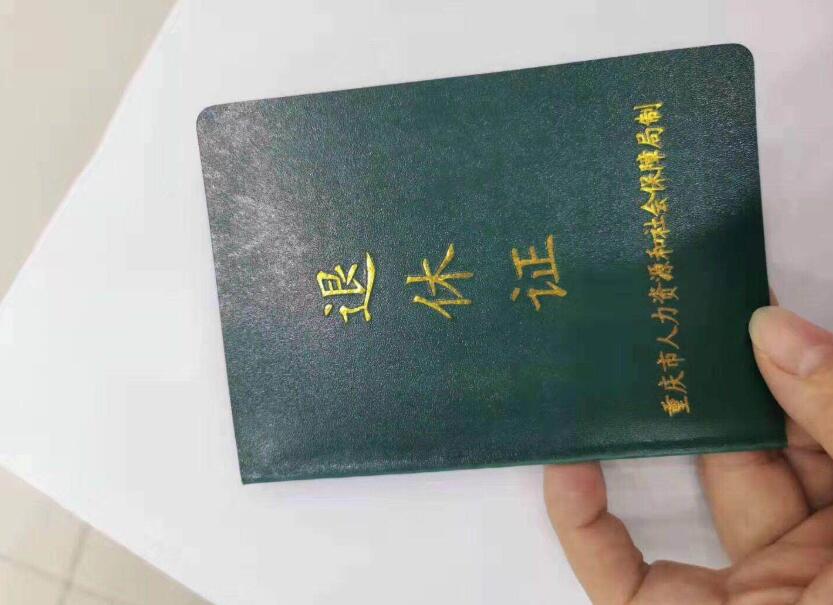 退休证
重庆市人力资源和社会保障局制